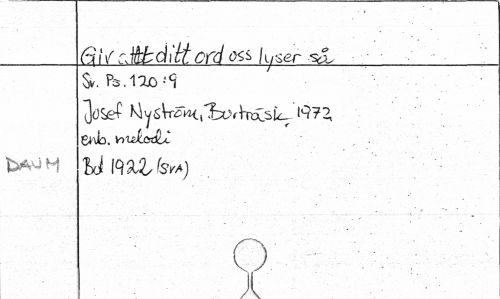 Giv att ditt ord oss lyser så
Sv. Ps. 120:9
Josef Nyström, Burträsk, 1972
enb. melodi
DAUM Bd 1922 (SVA)